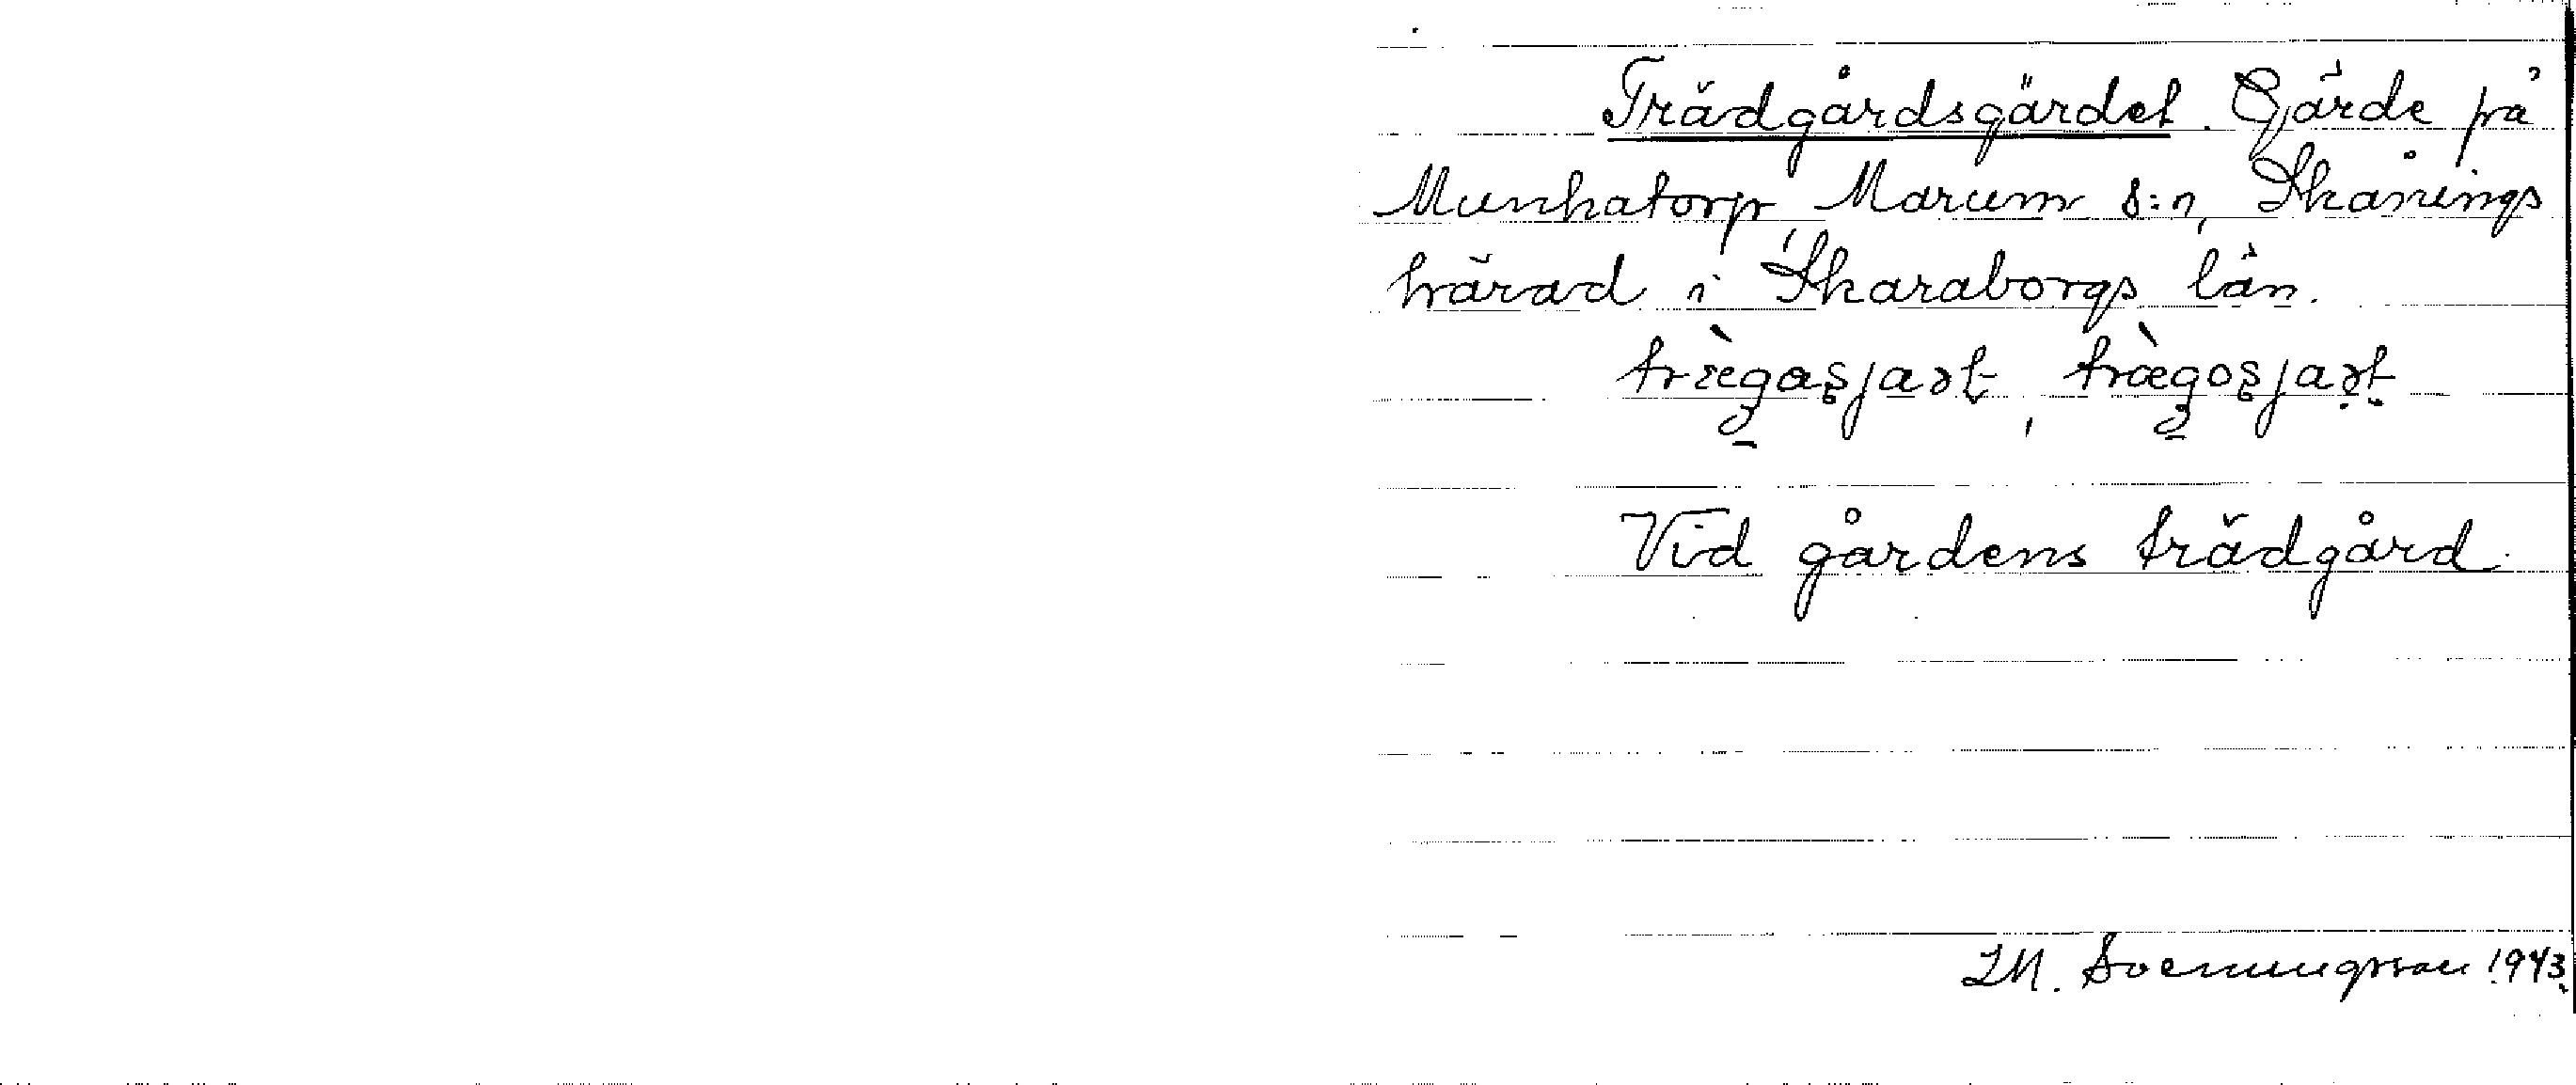 Trädgårdsgärdet. Gärde på
Munkatorp, Marum s:n, Skånings
härad i Skaraborgs län.
Vid gårdens trädgård.
1943.